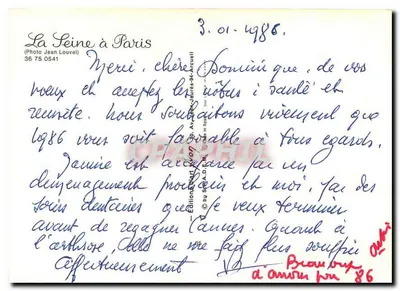 3.01.1986.
La Seine à Paris
(Photo Jean Louvel)
36 75 0541
Merci, chère Dominique, de vos
voeux et acceptez les nôtres : santé et
réussite. Nous souhaitons vivement que
1986 vous soit favorable à tous égards.
Janine est accaparée par un
déménagement prochain et moi, j'ai des
soins dentaires que je veux terminer
avant de regagner Cannes. Quant à
l'arthrose, elle ne me fait plus souffrir
affectueusement
Beaucoup
d'amour pour 86